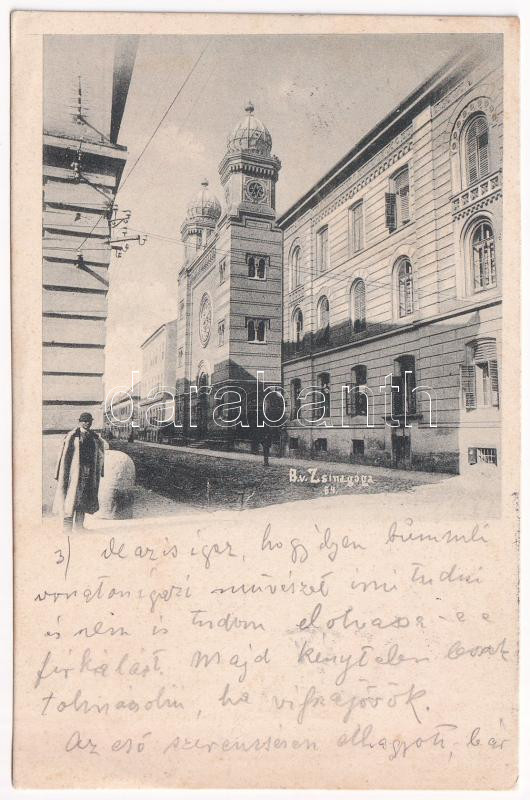 darabanth
B.v. Zsinagoga
64.
3/ De az is igaz, hogy ilyen bummli
vonaton igazi művészet írni tudni
és nem is tudom elolvassa-e e
firkálást. Majd kénytelen leszek
tolmácsolni, ha visszajövök.
Az eső szerencsésen elhagyott, bár